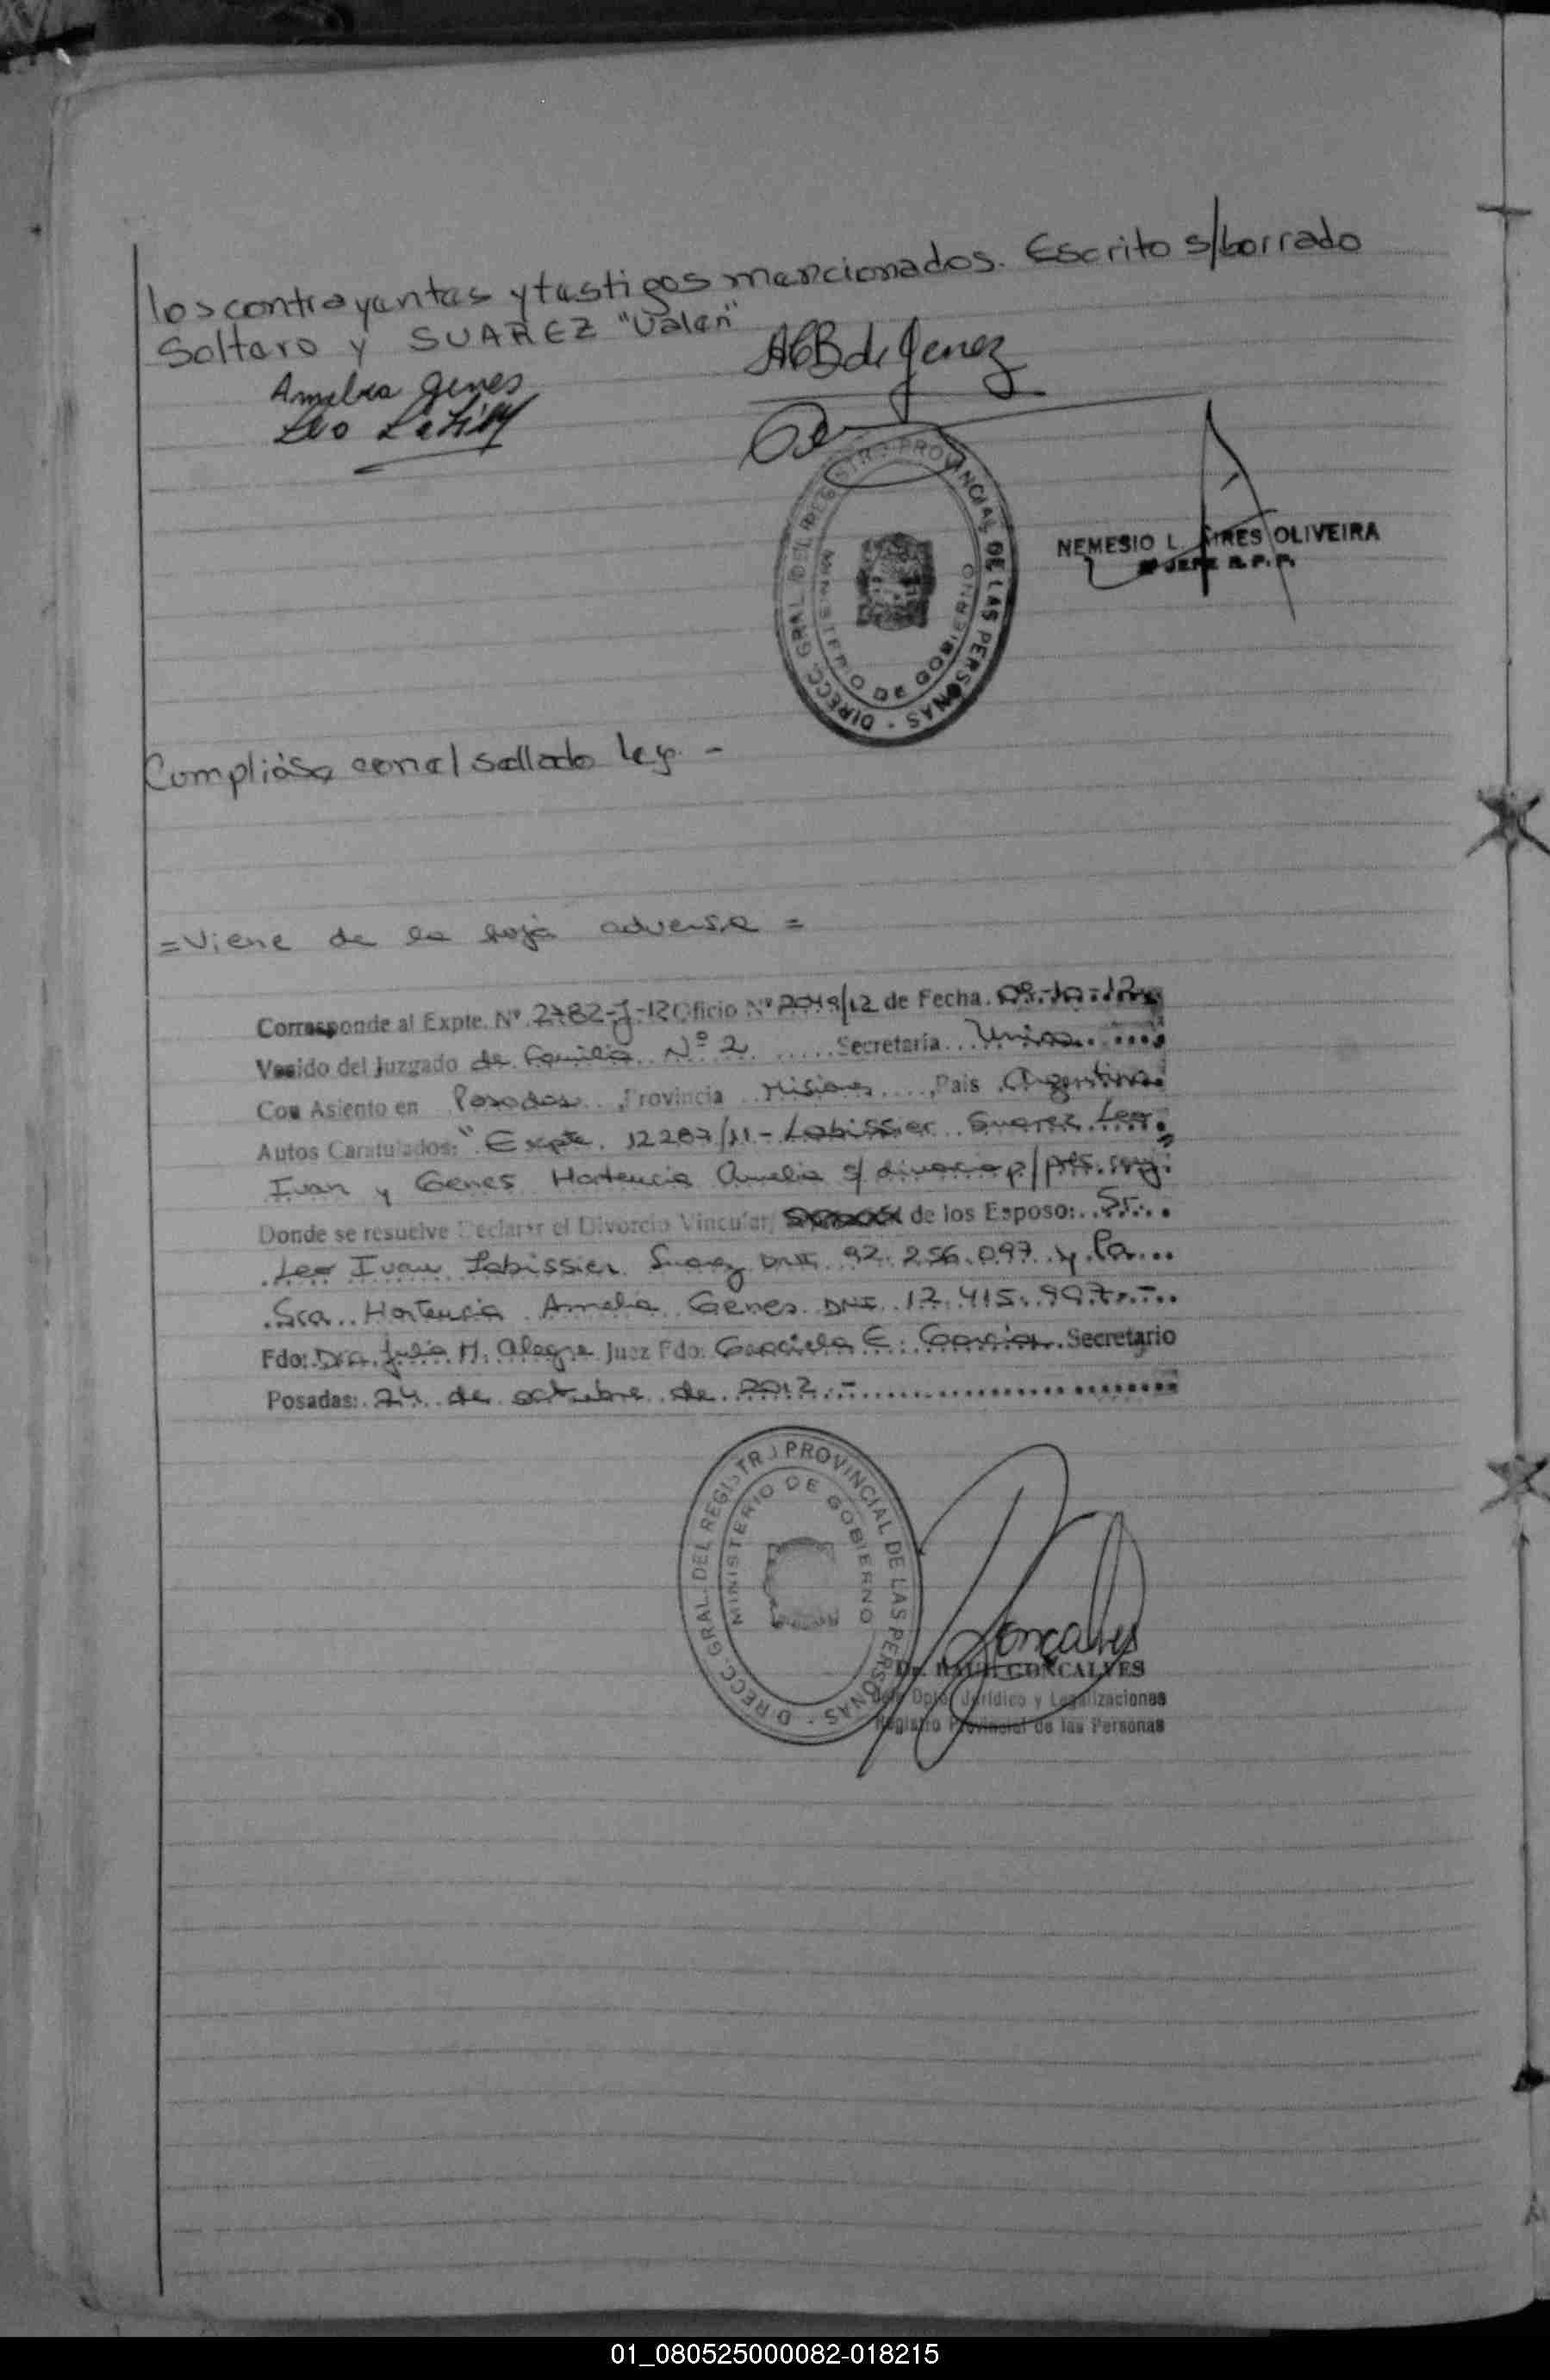 los contrayentes y testigos mencionados. Escrito s/borrado
Soltero y SUAREZ "Valen"
Amelia Genes
ACB de Genez
Leo
DIRECC. GRAL. DEL REGISTRO PROVINCIAL DE LAS PERSONAS -
MINISTERIO DE GOBIERNO
NEMESIO L. AIRES OLIVEIRA
JEFE R. P. P.
Cumplióse con el sellado ley. -
= Viene de la hoja adversa =
Corresponde al Expte. Nº 2782-J-12 Oficio Nº 2049/12 de Fecha. 09-10-12
Venido del Juzgado de Familia Nº 2 Secretaría Unica
Con Asiento en Posadas Provincia Misiones, País Argentina
Autos Caratulados: "Expte. 12287/11 - Labissier Suarez Leo
Ivan y Genes Hortencia Amelia s/ divorcio p/ pres. conj.
Donde se resuelve Declarar el Divorcio Vincular/ de los Esposo: Sr.
Leo Ivan Labissier Suarez DNI 92.256.097 y la
Sra. Hortencia Amelia Genes DNI 12.415.997.-
Fdo: Dra. Julia H. Alegre Juez Fdo. Graciela E. Garcia Secretario
Posadas: 24 de octubre de 2012.-
DIRECC. GRAL. DEL REGISTRO PROVINCIAL DE LAS PERSONAS -
MINISTERIO DE GOBIERNO
Goncalves
Dr. RAUL GONCALVES
Jefe Dpto. Jurídico y Legalizaciones
Registro Provincial de las Personas
01_080525000082-018215